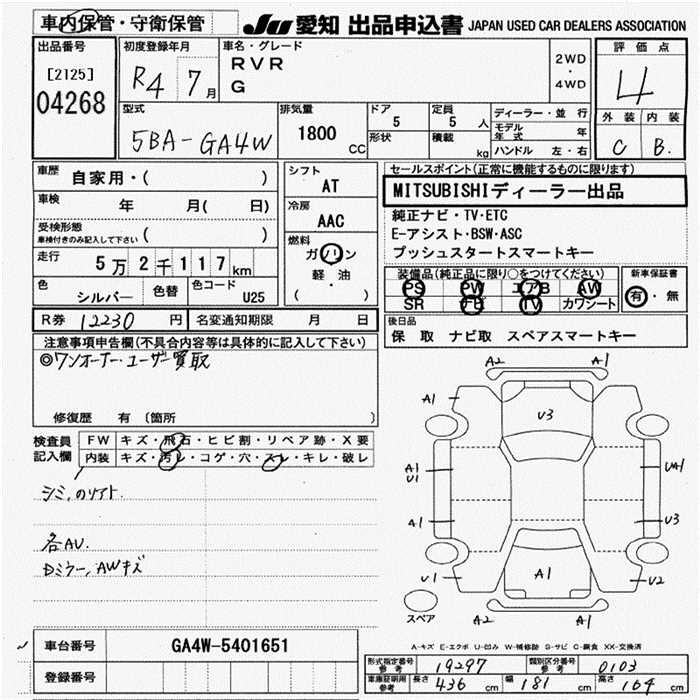 車内保管・守衛保管
JU 愛知 出品申込書 JAPAN USED CAR DEALERS ASSOCIATION
出品番号
[2125]
04268
初度登録年月
R4 7月
車名・グレード
RVR
G
2WD
・
4WD
評価点
4
外装 内装
C B.
型式
5BA-GA4W
排気量
1800 CC
ドア
5
形状
定員
5 人
積載
kg
ディーラー・並行
モデル年式 年
ハンドル 左・右
車歴
自家用・( )
車検
年 月( 日)
受検形態
車検付きのみ記入して下さい
( )
走行
5万2千117km
色
シルバー
色替
色コード
U25
シフト
AT
冷房
AAC
燃料
ガソリン
軽・油
( )
セールスポイント(正常に機能するものに限ります)
MITSUBISHIディーラー出品
純正ナビ・TV・ETC
E-アシスト・BSW・ASC
プッシュスタートスマートキー
装備品(純正品に限り○をつけてください)
PS PW エアB AW
SR ナビ TV カワシート
新車保証書
有・無
R券 12230 円
名変通知期限 月 日
後日品
保 取 ナビ取 スペアスマートキー
注意事項申告欄(不具合内容等は具体的に記入して下さい)
◎ワンオーナー・ユーザー買取
修復歴 有 〔箇所 〕
検査員記入欄
FW キズ・飛石・ヒビ割・リペア跡・X要
内装 キズ・汚レ・コゲ・穴・スレ・キレ・破レ
シミ,のリアト.
各AU.
Dミラー,AWキズ
A2 A1
A1
V3
A1
U1
UA1
A1
U3
U1
A1
U2
スペア
A2 A1
A-キズ E-エクボ U-凹み W-補修跡 S-サビ C-腐食 XX-交換済
車台番号
GA4W-5401651
登録番号
形式指定番号
参考
19297
類別区分番号
参考
0103
車庫証明用
参考
長さ 436 cm
幅 181 cm
高さ 164 cm